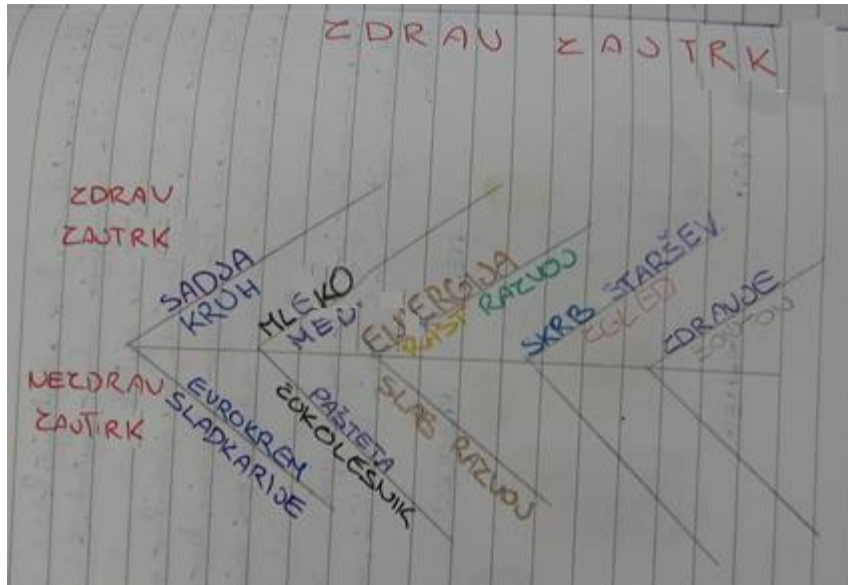 ZDRAV ZAJTRK
ZDRAV
ZAJTRK
SADJA
KRUH
MLEKO
MED
ENERGIJA
RAST RAZVOJ
SKRB STARŠEV
ZGLED
ZDRAVJE
NEZDRAV
ZAJTRK
EVROKREM
SLADKARIJE
PAŠTETA
ČOKOLEŠNIK
SLAB RAZVOJ